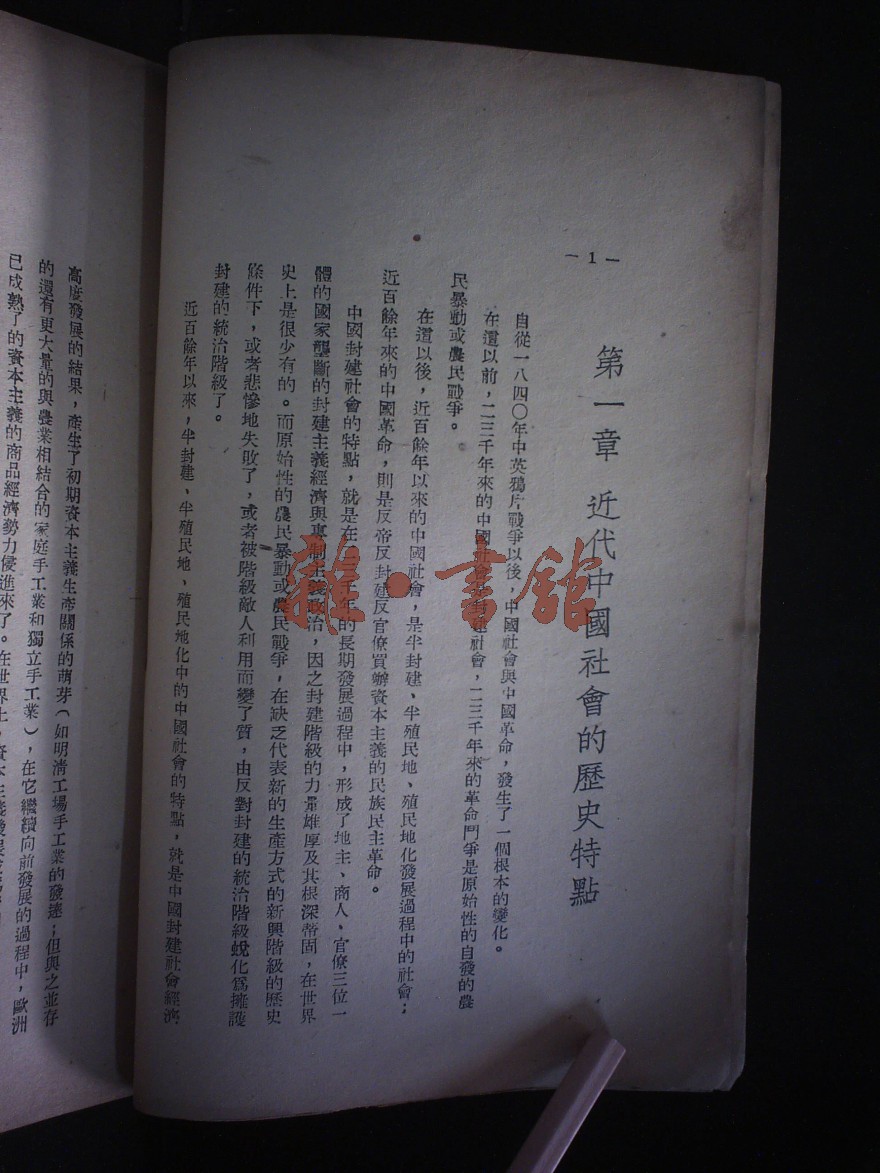 — 1 —
第一章 近代中國社會的歷史特點
自從一八四〇年中英鴉片戰爭以後，中國社會與中國革命，發生了一個根本的變化。
在這以前，二三千年來的中國社會是封建社會，二三千年來的革命鬥爭是原始性的自發的農
民暴動或農民戰爭。
在這以後，近百餘年以來的中國社會，是半封建、半殖民地、殖民地化發展過程中的社會；
近百餘年來的中國革命，則是反帝反封建反官僚買辦資本主義的民族民主革命。
中國封建社會的特點，就是在二三千年的長期發展過程中，形成了地主、商人、官僚三位一
體的國家壟斷的封建主義經濟與專制主義政治，因之封建階級的力量雄厚及其根深蒂固，在世界
史上是很少有的。而原始性的農民暴動或農民戰爭，在缺乏代表新的生產方式的新興階級的歷史
條件下，或者悲慘地失敗了，或者被階級敵人利用而變了質，由反對封建的統治階級蛻化爲擁護
封建的統治階級了。
近百餘年以來，半封建、半殖民地、殖民地化中的中國社會的特點，就是中國封建社會經濟
高度發展的結果，產生了初期資本主義生產關係的萌芽（如明清工場手工業的發達；但與之並存
的還有更大量的與農業相結合的家庭手工業和獨立手工業），在它繼續向前發展的過程中，歐洲
已成熟了的資本主義的商品經濟勢力侵進來了。在世界上，資本主義發展
雜·書館